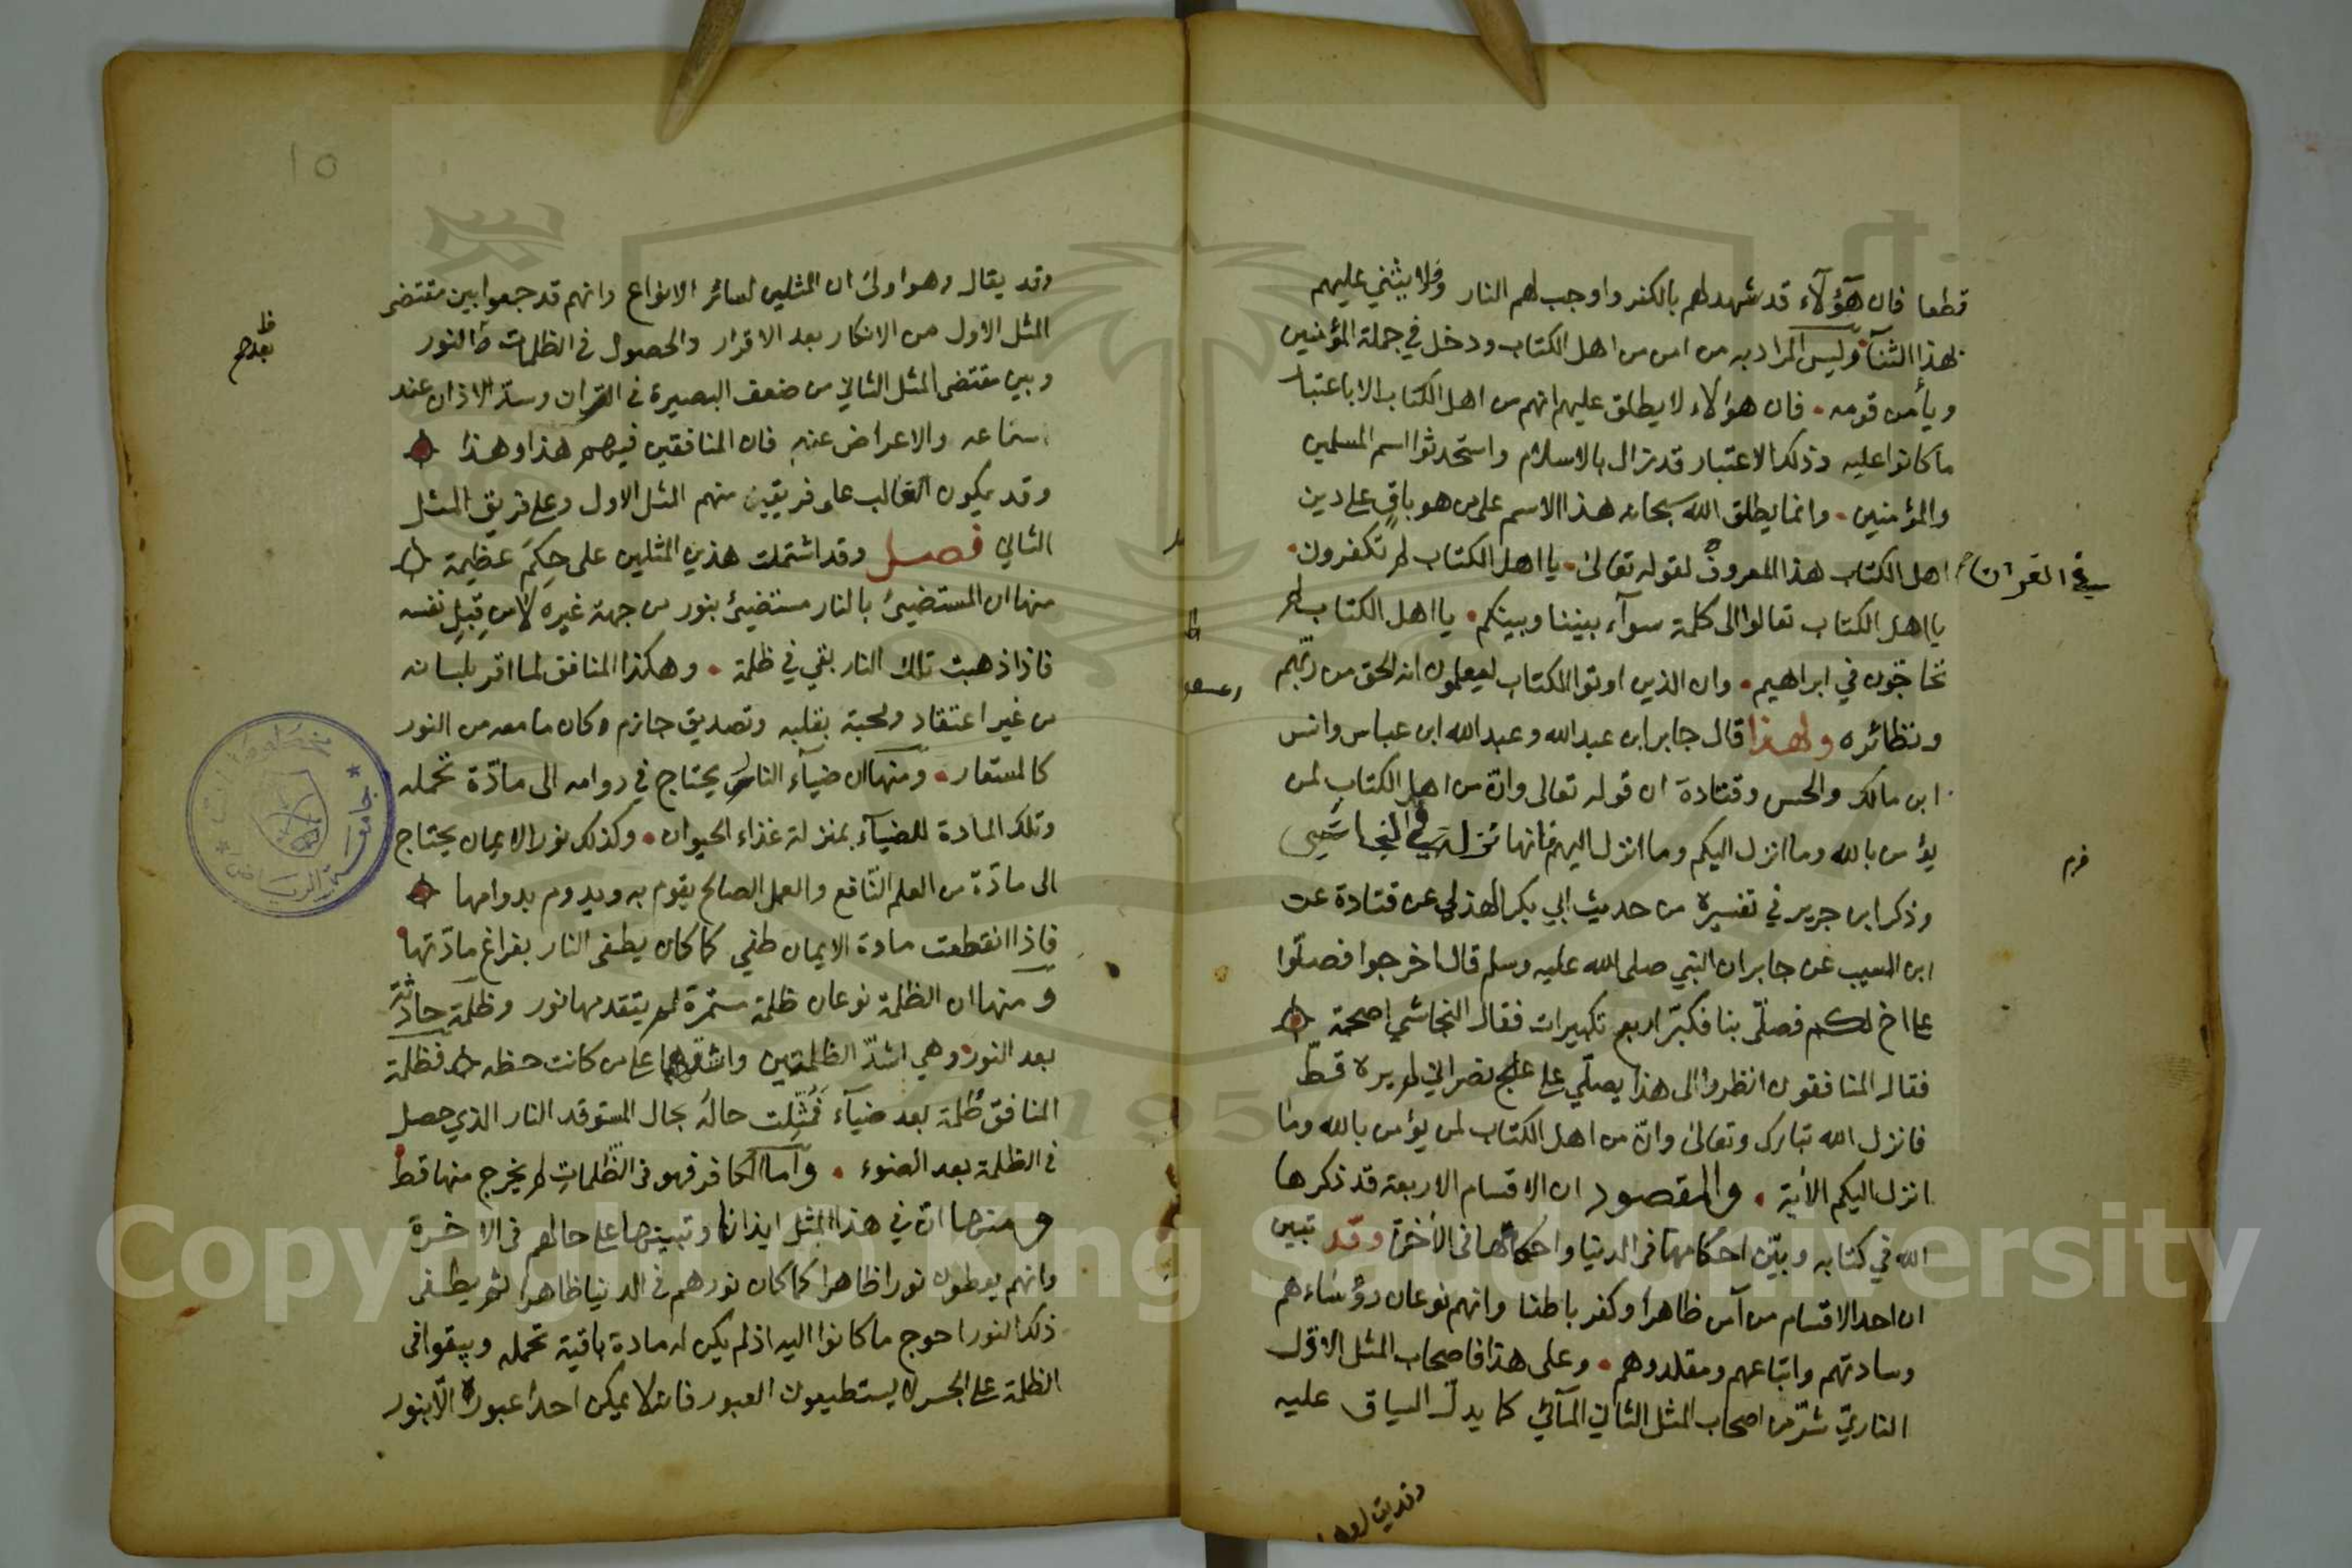 قطعا فان هؤلآء قد شهد لهم بالكفر واوجب لهم النار فلا يثني عليهم
بهذا الثنآء وليس المراد به من امن من اهل الكتاب ودخل في جملة المؤمنين
وياٌمن قومه . فان هؤلاء لا يطلق عليهم انهم من اهل الكتاب الا باعتبار
ما كانوا عليه وذلك الاعتبار قد زال بالاسلام واستحدثوا اسم المسلمين
والمؤمنين . وانما يطلق الله سبحانه هذا الاسم على من هو باقٍ على دين
اهل الكتاب هذا المعروف لقوله تعالى . يا اهل الكتاب لم تكفرون .
في القران
يا اهل الكتاب تعالوا الى كلمة سوآء بيننا وبينكم . يا اهل الكتاب لم
تحاجّون في ابراهيم . وان الذين اوتوا الكتاب ليعلمون انه الحق من ربّهم
ونظائره ولهذا قال جابر ابن عبدالله وعبدالله ابن عباس وانس
ابن مالك والحسن وقتادة ان قوله تعالى وانّ من اهل الكتاب لمن
يؤمن بالله وما انزل اليكم وما انزل اليهم فانها نزلت في النجاشي
وذكر ابن جرير في تفسيره من حديث ابي بكر الهذلي عن قتادة عن
ابن المسيب عن جابر ان النبي صلى الله عليه وسلم قال اخرجوا فصلّوا
على اخ لكم فصلّى بنا فكبّر اربع تكبيرات فقال النجاشي اصحمة
فقال المنافقون انظروا الى هذا يصلّي على علج نصراني لم يره قطّ
فانزل الله تبارك وتعالى وانّ من اهل الكتاب لمن يؤمن بالله وما
انزل اليكم الاٰية . والمقصود ان الاقسام الاربعة قد ذكرها
الله في كتابه وبيّن احكامها في الدنيا واحكامها في الاٰخرة وقد تبين
ان احد الاقسام من آمن ظاهرا وكفر باطنا وانهم نوعان رؤساءهم
وسادتهم واتباعهم ومقلدوهم . وعلى هذا فاصحاب المثل الاوّل
الناريّ شرّ من اصحاب المثل الثاني المآئي كما يدلّ السياق عليه
١٥
وقد يقال وهو اولى ان المثلين لسائر الانواع وانهم قد جمعوا بين مقتضى
المثل الاول من الانكار بعد الاقرار والحصول في الظلمات النور
ظ بعد صح
وبين مقتضى المثل الثاني من ضعف البصيرة في القران وسدّ الاذان عند
سماعه والاعراض عنه فان المنافقين فيهم هذا وهذا
وقد يكون الغالب على فريقين منهم المثل الاول وعلى فريق المثل
الثاني فصل وقد اشتملت هذين المثلين على حِكَم عظيمة
منها ان المستضيئ بالنار مستضيئ بنور من جهة غيره لا من قِبَلِ نفسه
فاذا ذهبت تلك النار بقي في ظلمة . وهكذا المنافق لما اقر بلسانه
من غير اعتقاد ومحبة بقلبه وتصديق جازم وكان ما معه من النور
كالمستعار . ومنها ان ضيآء النار يحتاج في دوامه الى مادّة تحمله
وتلك المادة للضيآء بمنزلة غذاء الحيوان . وكذلك نور الايمان يحتاج
الى مادّة من العلم النّافع والعمل الصالح يقوم به ويدوم بدوامها
فاذا انقطعت مادة الايمان طفي كما كان يطفى النار بفراغ مادّتها
ومنها ان الظلمة نوعان ظلمة مستمرّة لم يتقدمها نور وظلمة حادثة
بعد النور وهي اشدّ الظلمتين واشقهما على من كانت حظه فظلمة
المنافق ظلمة بعد ضيآء فمُثّلت حاله بحال المستوقد النار الذي حصل
في الظلمة بعد الضوء . وآما الكافر فهو في الظّلمات لم يخرج منها قط
ومنها انّ في هذا المثل ايذانا وتبيينها على حالهم في الاخرة
وانهم يعطون نورا ظاهرا كما كان نورهم في الدنيا ظاهرا ثم يطفى
ذلك النور احوج ما كانوا اليه اذ لم يكن له مادة باقية تحمله ويبقوا في
الظلمة على الجسر لا يستطيعون العبور فانه لا يمكن احدا عبوره الّا بنور
جامعة الرياض
Copyright © King Saud University
1957